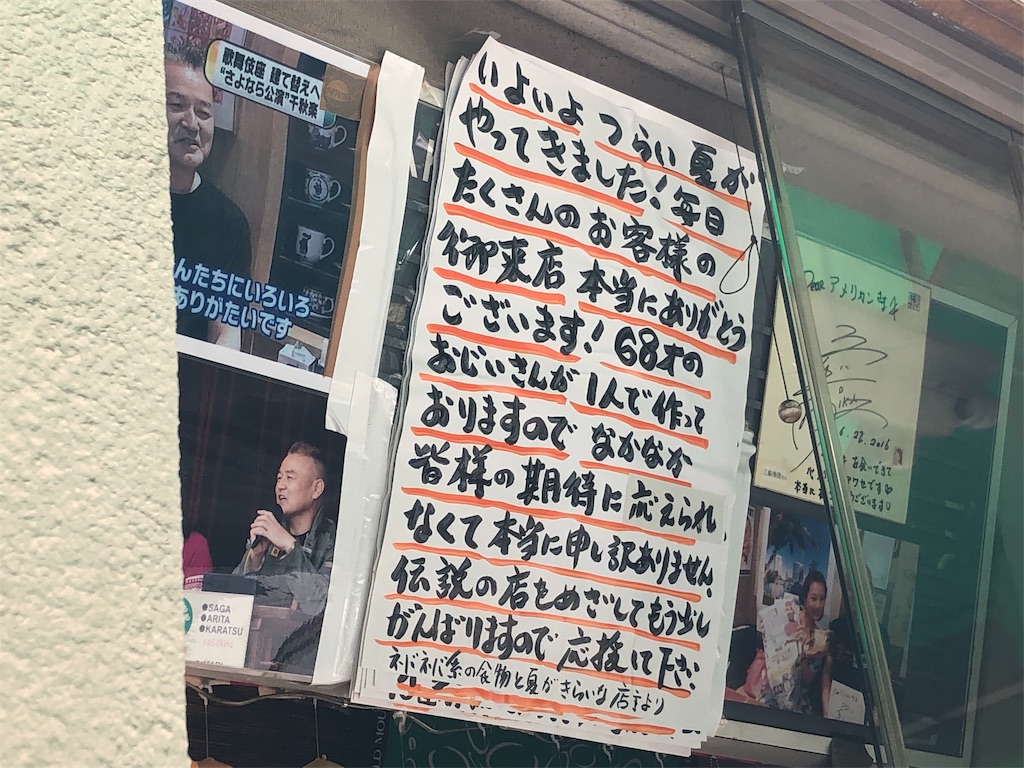 歌舞伎座 建て替えへ
“さよなら公演”千秋楽
んたちにいろいろ
ありがたいです
SAGA
ARITA
KARATSU
いよいよ つらい 夏が
やってきました！毎日
たくさんのお客様の
御来店 本当にありがとう
ございます！68才の
おじいさんが 1人で作って
おりますので なかなか
皆様の期待に応えられ
なくて本当に申し訳ありません。
伝説の店をめざしてもう少し
がんばりますので 応援して下さい
ネバネバ系の食物と夏がきらいな店主より
Dear アメリカン
6.22.2016
お会いできて
アワセです♡
ございます